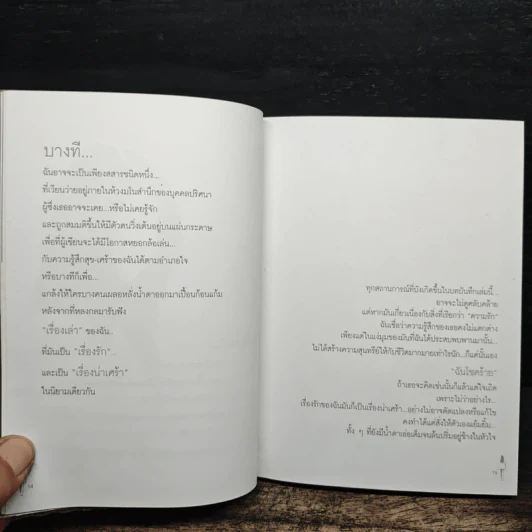 บางที...
ฉันอาจจะเป็นเพียงสสารชนิดหนึ่ง...
ที่เวียนว่ายอยู่ภายในห้วงมโนสำนึกของบุคคลปริศนา
ผู้ซึ่งเธออาจจะเคย...หรือไม่เคยรู้จัก
และถูกสมมติขึ้นให้มีตัวตนวิ่งเต้นอยู่บนแผ่นกระดาษ
เพื่อที่ผู้เขียนจะได้มีโอกาสหยอกล้อเล่น...
กับความรู้สึกสุข-เศร้าของฉันได้ตามอำเภอใจ
หรือบางทีก็เพื่อ...
แกล้งให้ใครบางคนเผลอหลั่งน้ำตาออกมาเปื้อนก้อนแก้ม
หลังจากที่หลงกลมารับฟัง
"เรื่องเล่า" ของฉัน..
ที่มันเป็น "เรื่องรัก"..
และเป็น "เรื่องน่าเศร้า"
ในนิยามเดียวกัน
ทุกสถานการณ์ที่บังเกิดขึ้นในบทบันทึกเล่มนี้...
อาจจะไม่ดูคลับคล้าย
แต่หากมันเกี่ยวเนื่องกับสิ่งที่เรียกว่า "ความรัก"
ฉันเชื่อว่าความรู้สึกของเธอคงไม่แตกต่าง
เพียงแต่ในแง่มุมของมันที่ฉันได้ประสบพบพานมานั้น...
ไม่ได้สร้างความสุนทรีย์ให้กับชีวิตมากมายเท่าไรนัก...ก็แค่นั้นเอง
"ฉันโชคร้าย"
ถ้าเธอจะคิดเช่นนั้นก็แล้วแต่ใจเถิด
เพราะไม่ว่าอย่างไร...
เรื่องรักของฉันมันก็เป็นเรื่องน่าเศร้า...อย่างไม่อาจดัดแปลงหรือแก้ไข
คงทำได้แค่สั่งให้ตัวเองแย้มยิ้ม...
ทั้ง ๆ ที่ยังมีน้ำตาเอ่อเต็มจนล้นปริ่มอยู่ข้างในหัวใจ